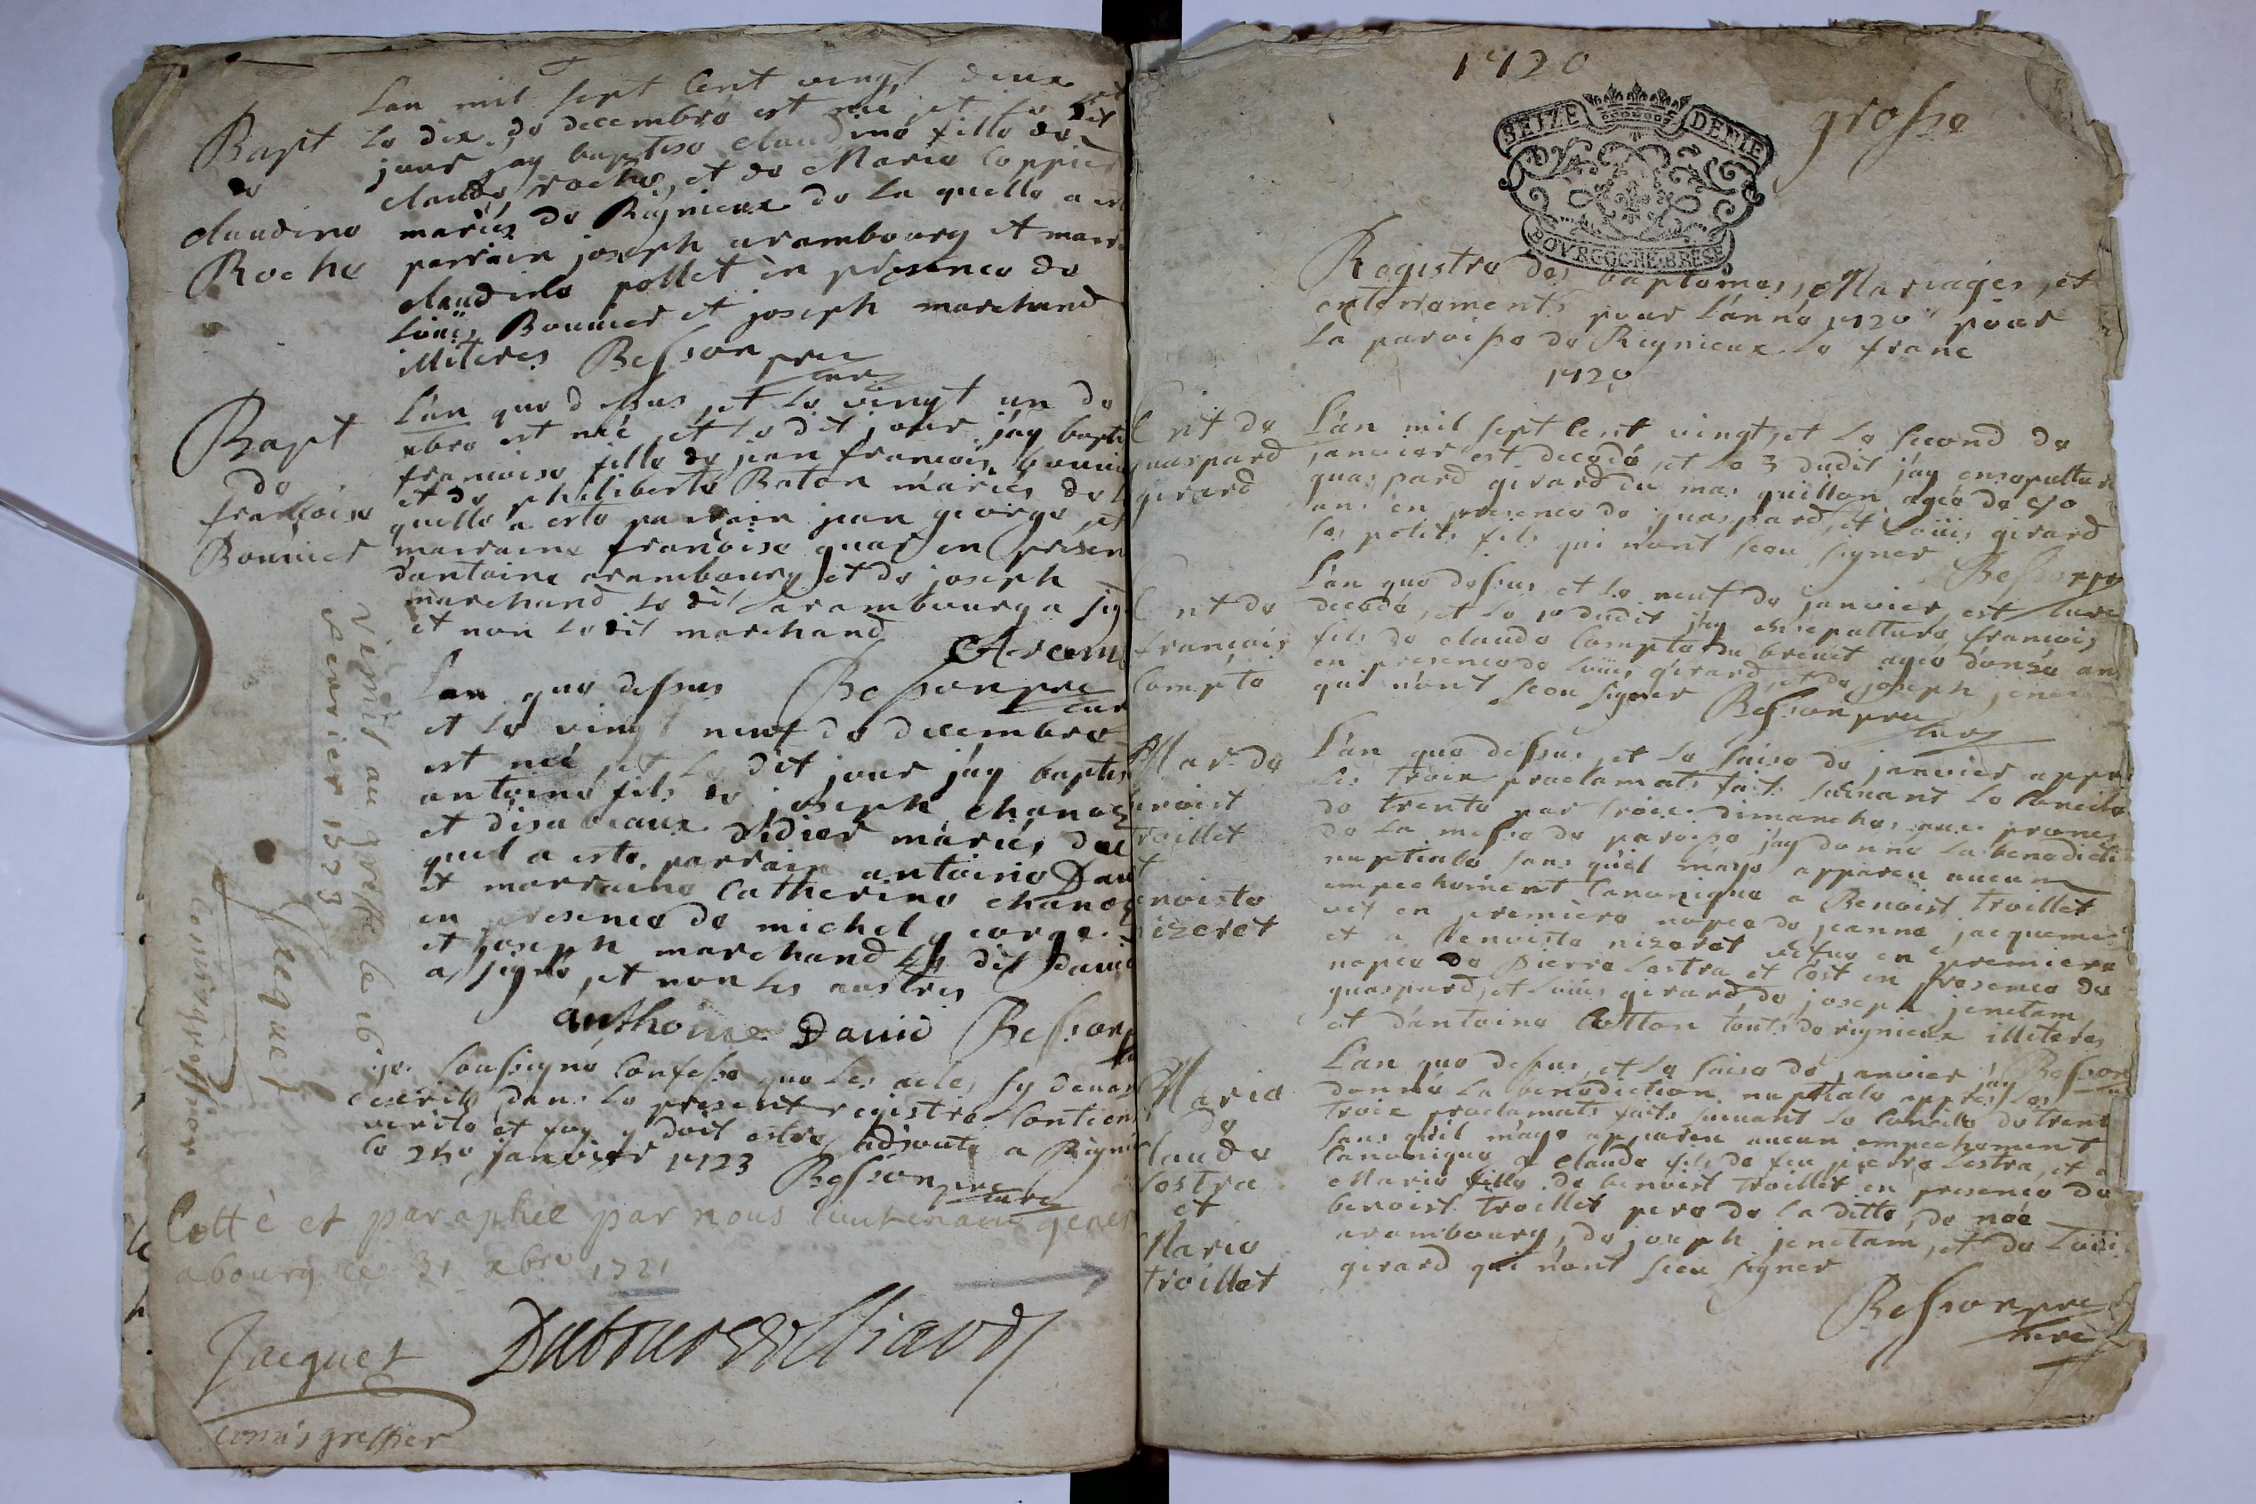 Lan mil sept Cent vingt deux et
Le dix de decembre est née et le dit
jour jay baptise claudine fille de
claude roche, et de Marie Coppier
mariés de Rignieux de la quelle a est
parrain joseph arambourg et marr
claudine pollet en presence de
Louïs Bouuier et joseph marchand
illiteres Besson pre
cure
Bapt
de
claudine
Roche
L'an que dessus et le vingt un de
xbre est née et le dit jour jay bapti
francoise fille de jean francois bouuie
et de philiberte Baton mariés de l
quelle a este parrain jean george et
marraine francoise quar en presen
d'antoine arambourg et de joseph
marchand le dit arambourg a sig
et non le dit marchand
Aram
Bapt
de
francoise
Bouuier
Lan que dessus Besson pre
cur
et le vingt neuf de decembre
est née et le dit jour jay baptis
antoine fils de joseph chanoz
et disabeaux didier mariés du
quel a este parrain antoine Dau
et marraine Catherine chanoz
en presence de michel george
et joseph marchand le dit Dauid
a signé et non les austres
anthoine Dauid Besson
je soussigné Confesse que les actes sy deuan
escrits dans le present registre Contient
verité et foy y doit estre adjoute a Rigni
le 24e janvier 1723 Besson pre
cure
Cotté et paraphée par nous lieutenant gener
a bourg ce 31 xbre 1721
Jacquet
comis greffier
Remis au greffe le 16
feurier 1723
Jacquet
comis greffier
1720
grosse
SEIZE DENIE
BOVRGOGNE BRESSE
Registre des baptemes, Mariages, et
enterrements pour L'anne 1720 pour
La paroisse de Rignieux le franc
1720
nt de
guaspard
girard
L'an mil sept Cent vingt, et le second de
janvier est decedé, et le 3 dudit j'ay ensepulture
guaspard girard du mas guillon agée de 90
ans en presence de guaspard, et Louïs girard
ses petits fils qui n'ont sceu signer
Besson pre
cure
nt de
francois
Compte
L'an que dessus et le neuf de janvier, est
decedé, et le 10 dudit j'ay ensepulturé francois
fils de claude Compte du breuet agée d'onze an
en presence de Louïs girard, et de joseph jene
qui n'ont sceu signer Besson pre
cure
Mar de
enoist
troillet
et
enoiste
nizeret
L'an que dessus, et le saise de janvier appre
les troix proclamats faits suiuant le Concile
de trente par troix dimanches aux prones
de la messe de paroisse j'ay donné la benedicti
nuptiale sans qu'il m'aye apparu aucun
empechement Canonique a Benoist troillet
vef en premiere nopce de jeanne jacqueme
et a benoiste nizeret vefue en premiere
nopce de Pierre Lestra et c'est en presence de
guaspard, et Louïs girard, de joseph jenetam
et d'antoine Cotton touts de rignieux illiteres
Besson
cu
Maria
de
claude
Lestra
et
Marie
troillet
L'an que dessus, et le saise de janvier j'ay
donné la benediction nuptiale appres les
troix proclamats faits suiuant le Concile de trent
sans qu'il m'aye apparu aucun empechement
Canonique a claude fils de feu pierre Lestra, et a
Marie fille de benoist troillet en presence de
benoist troillet pere de la ditte, de noé
arambourg, de joseph jenetam, et de Louïs
girard qui n'ont sceu signer
Besson pre
cure